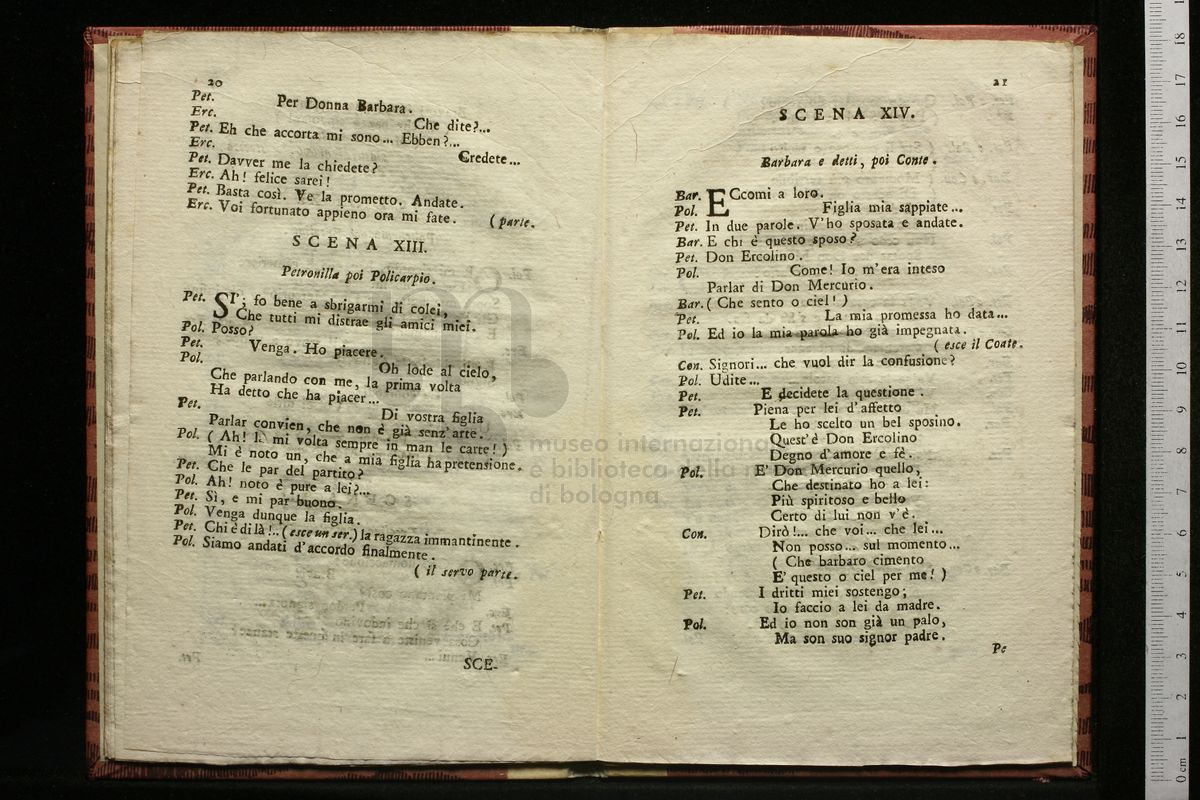 20
Pet. Per Donna Barbara.
Erc. Che dite?...
Pet. Eh che accorta mi sono... Ebben?...
Erc. Credete...
Pet. Davver me la chiedete?
Erc. Ah! felice sarei!
Pet. Basta così. Ve la prometto. Andate.
Erc. Voi fortunato appieno ora mi fate. (parte.
SCENA XIII.
Petronilla poi Policarpio.
Pet. SI'; fo bene a sbrigarmi di colei,
Che tutti mi distrae gli amici miei.
Pol. Posso?
Pet. Venga. Ho piacere.
Pol. Oh lode al cielo,
Che parlando con me, la prima volta
Ha detto che ha piacer...
Pet. Di vostra figlia
Parlar convien, che non è già senz'arte.
Pol. (Ah! mi volta sempre in man le carte!)
Mi è noto un, che a mia figlia ha pretensione.
Pet. Che le par del partito?
Pol. Ah! noto è pure a lei?...
Pet. Sì, e mi par buono.
Pol. Venga dunque la figlia.
Pet. Chi è di là!.. (esce un ser.) la ragazza immantinente.
Pol. Siamo andati d'accordo finalmente.
(il servo parte.
SCE-
21
SCENA XIV.
Barbara e detti, poi Conte.
Bar. ECcomi a loro.
Pol. Figlia mia sappiate...
Pet. In due parole. V'ho sposata e andate.
Bar. E chi è questo sposo?
Pet. Don Ercolino.
Pol. Come! Io m'era inteso
Parlar di Don Mercurio.
Bar. (Che sento o ciel!)
Pet. La mia promessa ho data...
Pol. Ed io la mia parola ho già impegnata.
(esce il Conte.
Con. Signori... che vuol dir la confusione?
Pol. Udite...
Pet. E decidete la questione.
Pet. Piena per lei d'affetto
Le ho scelto un bel sposino.
Quest'è Don Ercolino
Degno d'amore e fè.
Pol. E' Don Mercurio quello,
Che destinato ho a lei:
Più spiritoso e bello
Certo di lui non v'è.
Con. Dirò!... che voi... che lei...
Non posso... sul momento...
(Che barbaro cimento
E' questo o ciel per me!)
Pet. I dritti miei sostengo;
Io faccio a lei da madre.
Pol. Ed io non son già un palo,
Ma son suo signor padre.
Pe
museo internaziona
e biblioteca della m
di bologna
0 cm 1 2 3 4 5 6 7 8 9 10 11 12 13 14 15 16 17 18